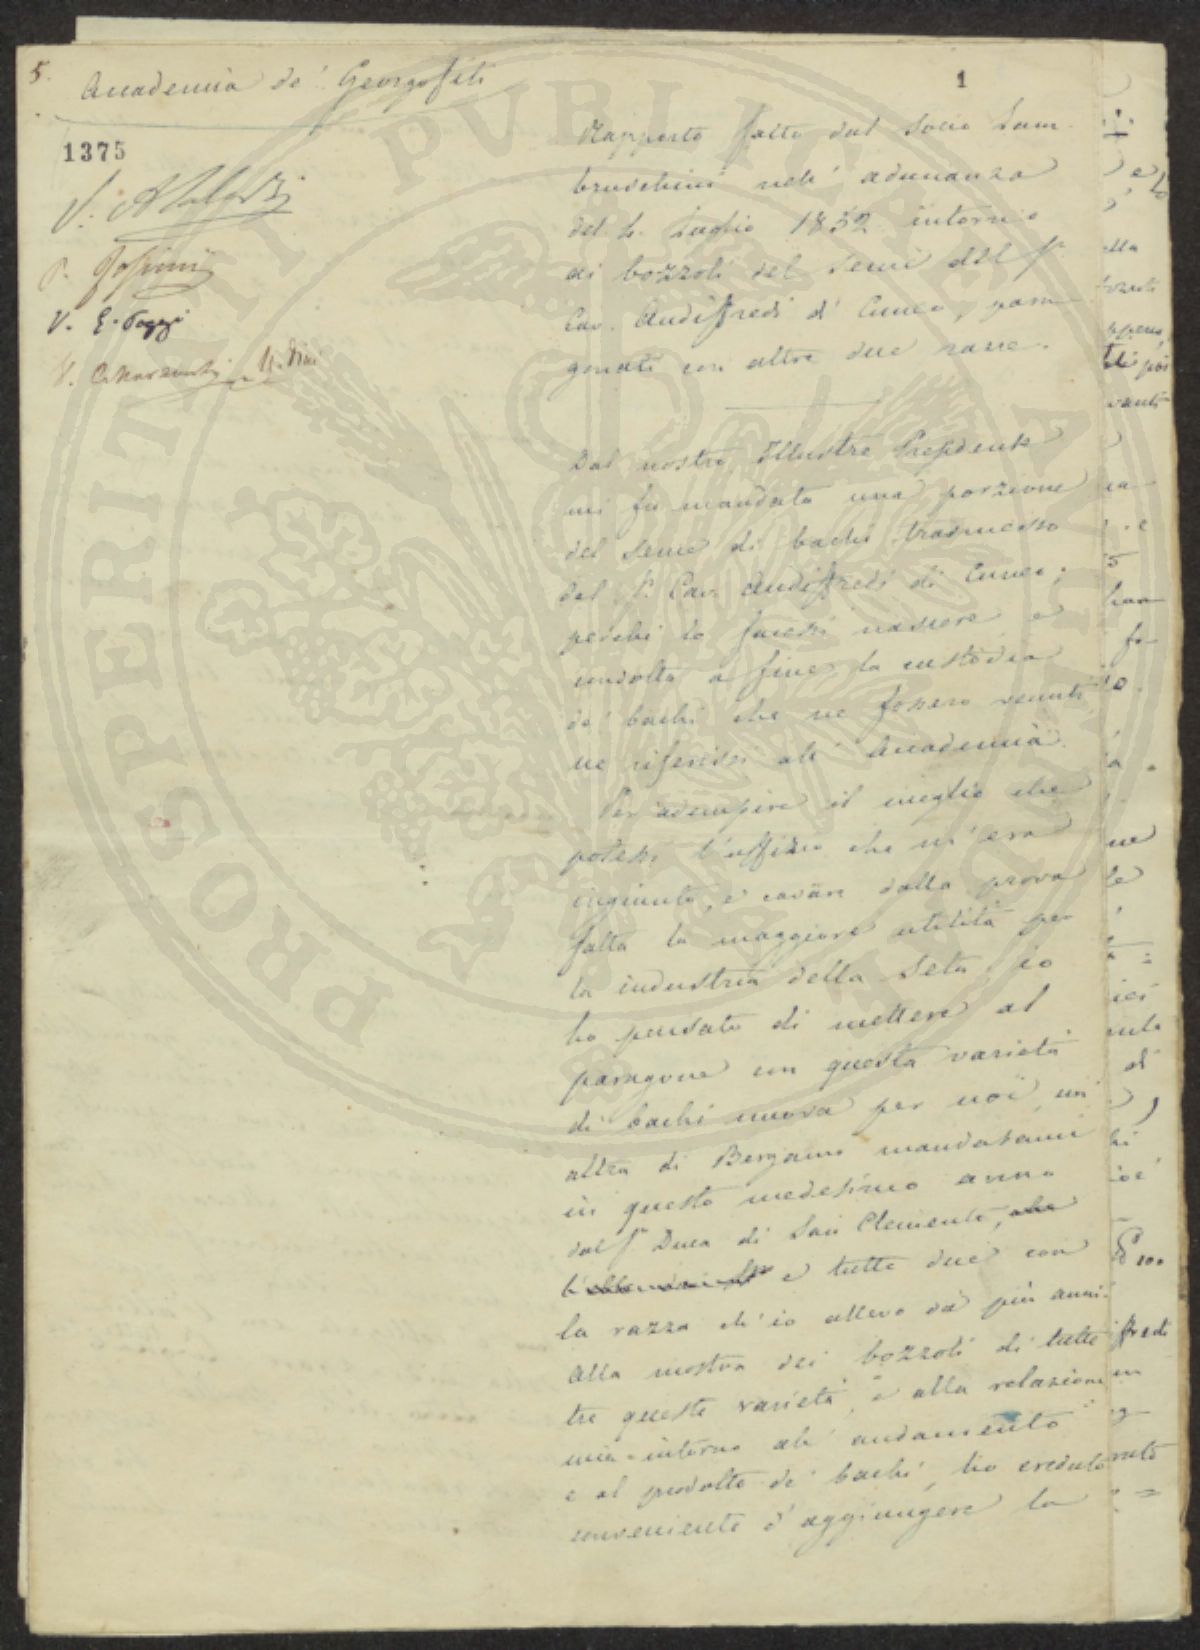 5.
Accademia de' Georgofili
1
1375
V.
V.
V. E. Poggi
V.
Rapporto fatto dal Socio Lam-
bruschini nell' adunanza
del 4. Luglio 1852 intorno
ai bozzoli del seme del Sr.
Cav. Audiffredi di Cuneo, para-
gonati con altre due razze.
Dal nostro Illustre Presidente
mi fu mandata una porzione
del seme di bachi trasmesso
dal Sr. Cav. Audiffredi di Cuneo;
perché lo facessi nascere e
condotta a fine la custodia
de' bachi che ne fossero venuti
ne riferissi all' Accademia.
Per adempire il meglio che
potessi l'uffizio che m'era
ingiunto, e cavare dalla prova
fatta la maggiore utilità per
la industria della Seta, io
ho pensato di mettere al
paragone con questa varietà
di bachi nuova per noi, un'
altra di Bergamo mandatami
in questo medesimo anno
dal Sr. Duca di San Clemente, che
e tutte due con
la razza ch'io allevo da più anni.
Alla mostra dei bozzoli di tutte
tre queste varietà, e alla relazione
mia intorno all' andamento
e al prodotto de' bachi, ho creduto
conveniente d'aggiungere la
PROSPERITATI PUBLICAE AUGENDAE